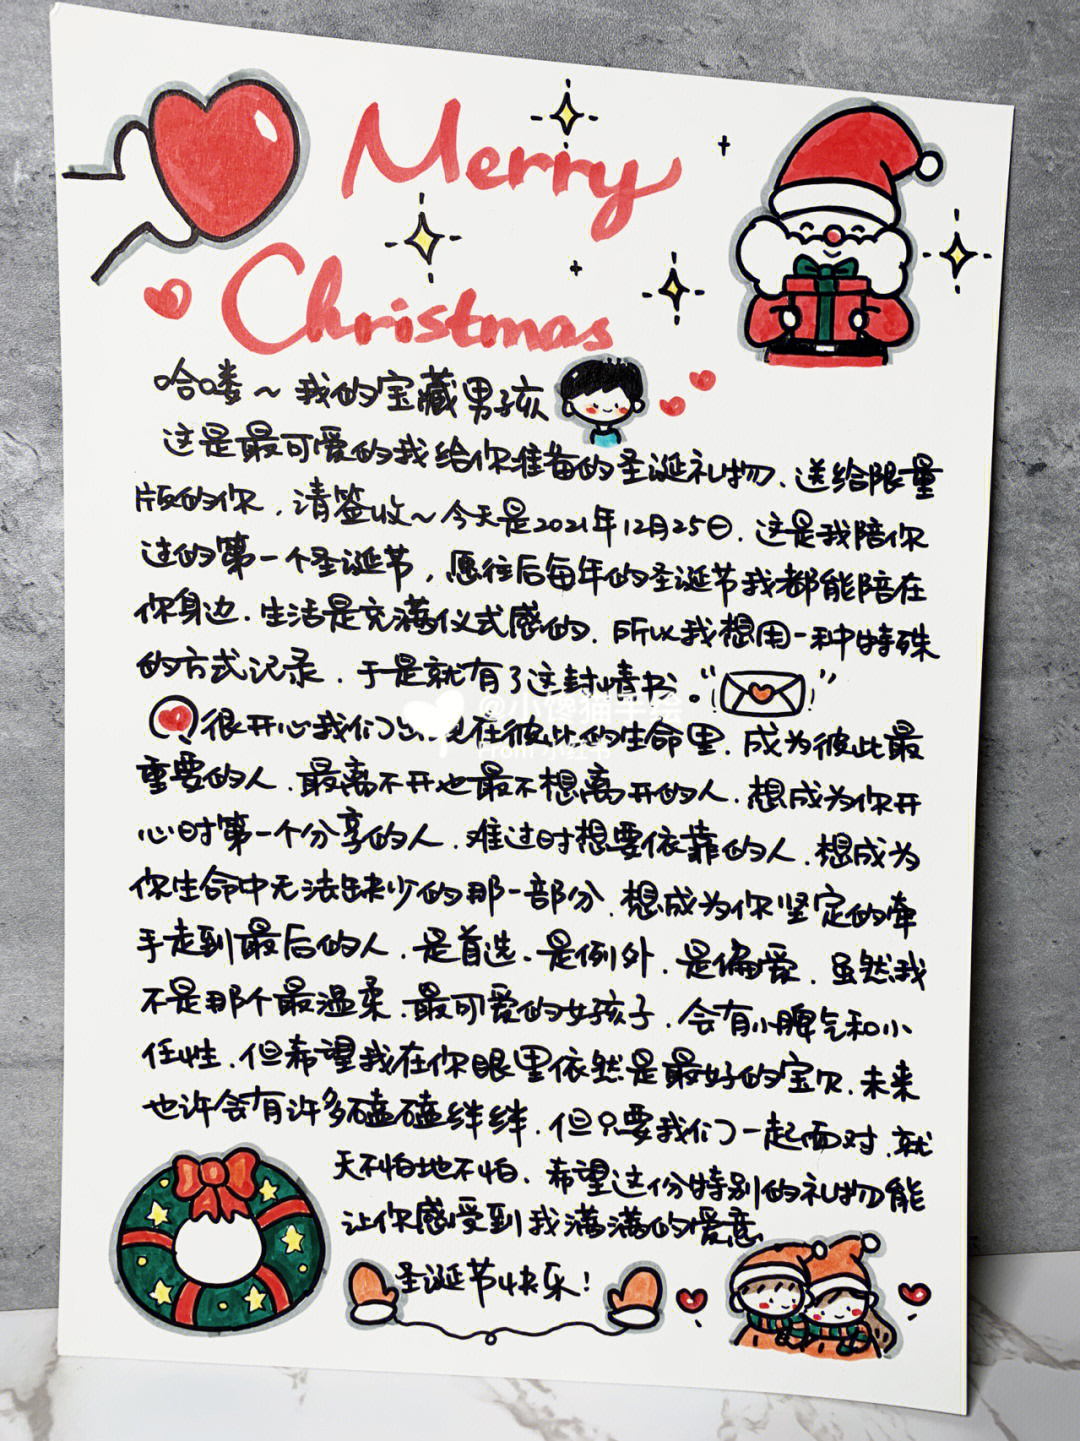 Merry
Christmas
哈喽~我的宝藏男孩
这是最可爱的我给你准备的圣诞礼物、送给限量
版的你，请签收~今天是2021年12月25日、这是我陪你
过的第一个圣诞节，愿往后每年的圣诞节我都能陪在
你身边、生活是充满仪式感的、所以我想用一种特殊
的方式记录、于是就有了这封情书、
很开心我们出现在彼此的生命里、成为彼此最
重要的人、最离不开也最不想离开的人、想成为你开
心时第一个分享的人、难过时想要依靠的人、想成为
你生命中无法缺少的那一部分、想成为你坚定的牵
手走到最后的人、是首选、是例外、是偏爱、虽然我
不是那个最温柔、最可爱的女孩子、会有小脾气和小
任性、但希望我在你眼里依然是最好的宝贝、未来
也许会有许多磕磕绊绊、但只要我们一起面对、就
天不怕地不怕、希望这份特别的礼物能
让你感受到我满满的爱意
圣诞节快乐！
@小馋猫手绘
From 小红书